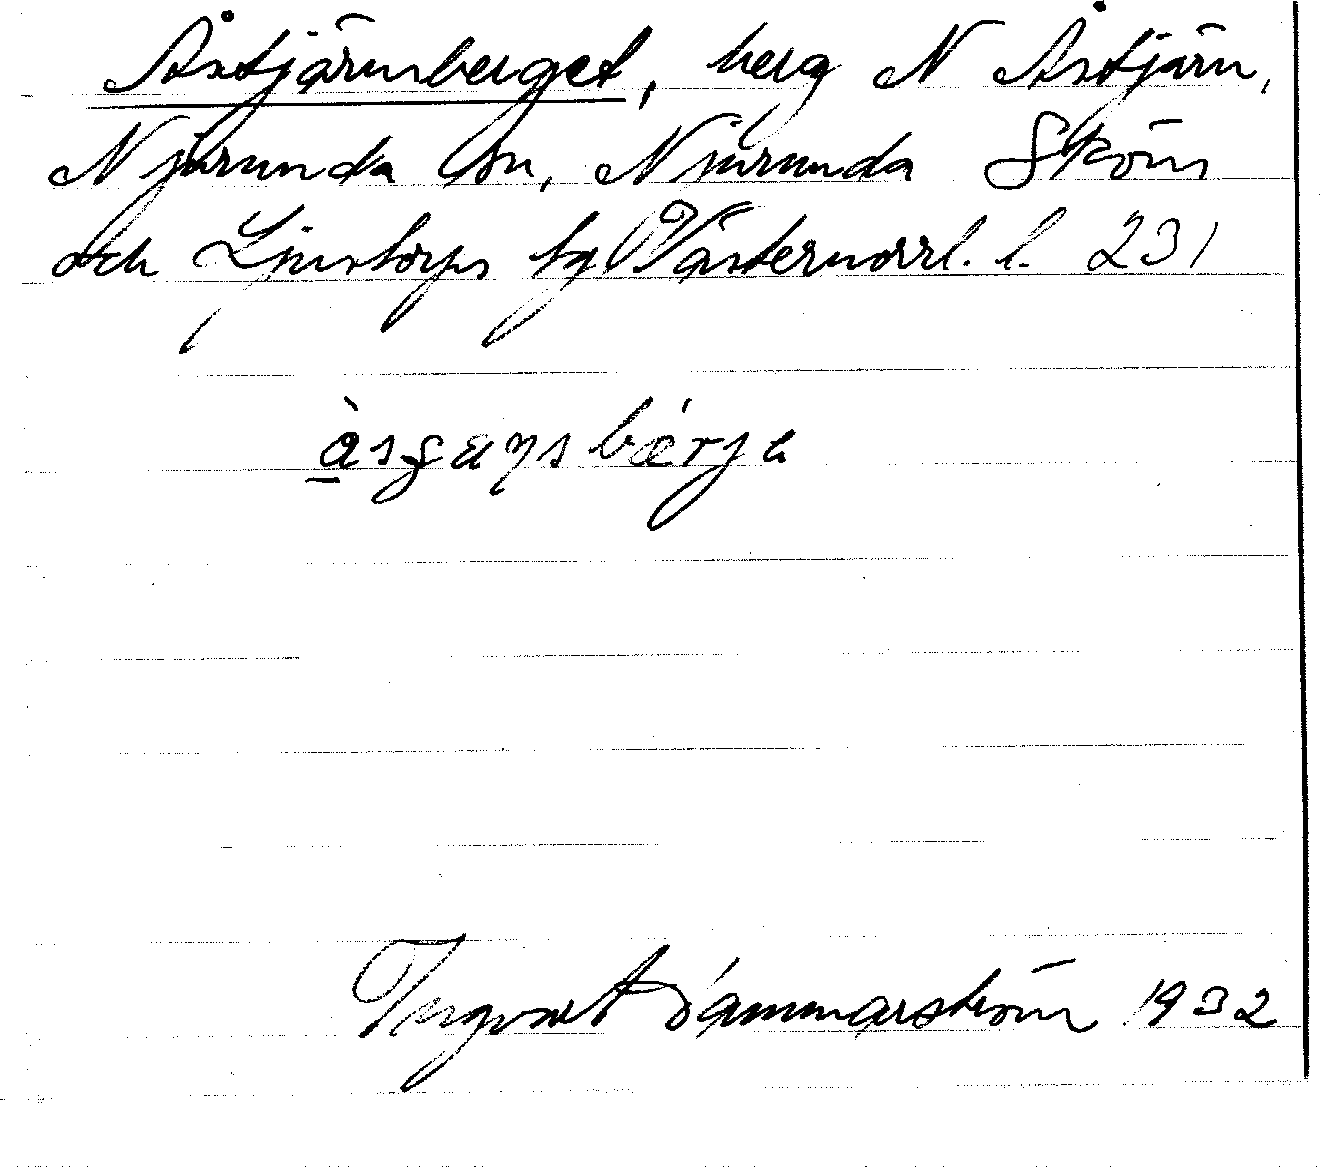 Åstjärnberget, berg N Åstjärn,
Njurunda sn, Njurunda Sköns
och Ljustorps tg Västernorrl. l. 231
Ingvart Dammarström 1932